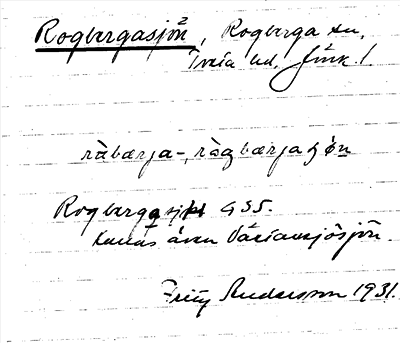 Rogbergasjön², Rogberga sn,
Tveta hd, Jönk. l.
råbærja-, rågbærjaʃøn
Rogberga sjö G 35.
Kallas även Vä sjön.
Fritz Andersson 1931.